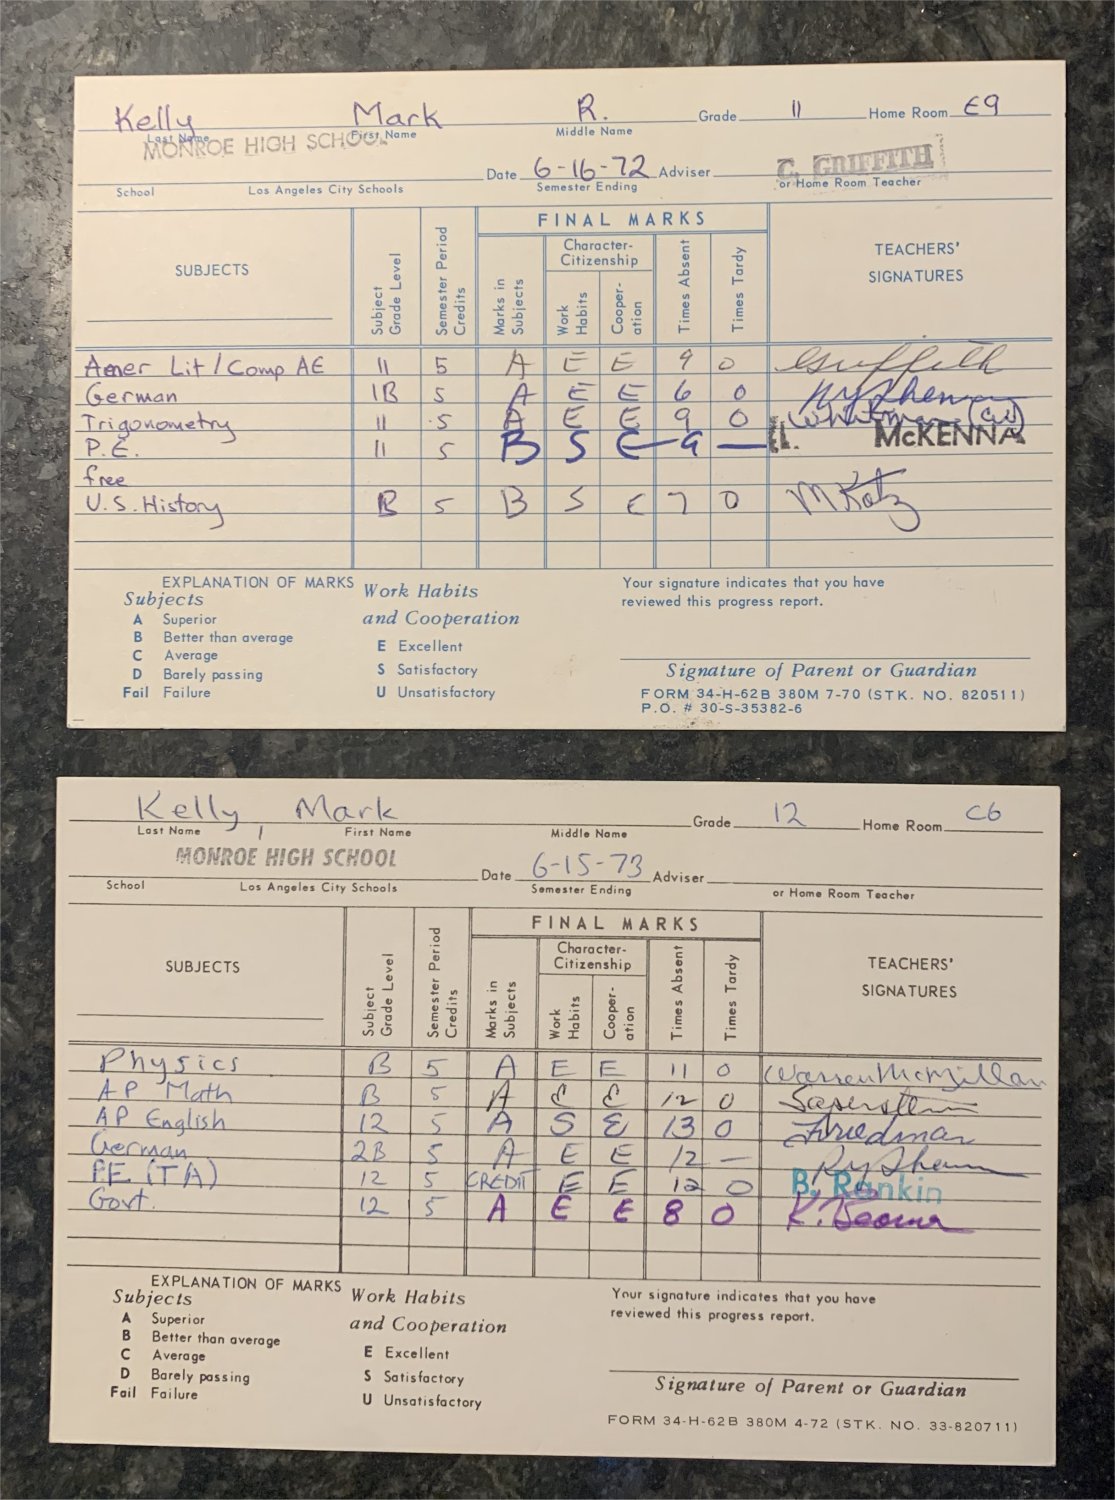 Kelly Mark R. Grade 11 Home Room E9
Last Name First Name Middle Name
MONROE HIGH SCHOOL
Date 6-16-72 Adviser C. GRIFFITH
School Los Angeles City Schools Semester Ending or Home Room Teacher
SUBJECTS Subject Grade Level Semester Period Credits FINAL MARKS TEACHERS' SIGNATURES
Marks in Subjects Character-Citizenship Work Habits Cooper-ation Times Absent Times Tardy
Amer Lit/Comp AE 11 5 A E E 9 0 Griffith
German 1B 5 A E E 6 0
Trigonometry 11 5 A E E 9 0
P.E. 11 5 B S E 9 — McKENNA
free
U.S. History B 5 B S E 7 0 M Katz
EXPLANATION OF MARKS
Subjects
A Superior
B Better than average
C Average
D Barely passing
Fail Failure
Work Habits
and Cooperation
E Excellent
S Satisfactory
U Unsatisfactory
Your signature indicates that you have
reviewed this progress report.
Signature of Parent or Guardian
FORM 34-H-62B 380M 7-70 (STK. NO. 820511)
P.O. # 30-S-35382-6
Kelly Mark Grade 12 Home Room C6
Last Name First Name Middle Name
MONROE HIGH SCHOOL
Date 6-15-73 Adviser
School Los Angeles City Schools Semester Ending or Home Room Teacher
SUBJECTS Subject Grade Level Semester Period Credits FINAL MARKS TEACHERS' SIGNATURES
Marks in Subjects Character-Citizenship Work Habits Cooper-ation Times Absent Times Tardy
Physics B 5 A E E 11 0 Warren McMillan
AP Math B 5 A E E 12 0 Saperstein
AP English 12 5 A S E 13 0 Friedman
German 2B 5 A E E 12 —
PE (TA) 12 5 CREDIT E E 12 0 B. Rankin
Govt. 12 5 A E E 8 0
EXPLANATION OF MARKS
Subjects
A Superior
B Better than average
C Average
D Barely passing
Fail Failure
Work Habits
and Cooperation
E Excellent
S Satisfactory
U Unsatisfactory
Your signature indicates that you have
reviewed this progress report.
Signature of Parent or Guardian
FORM 34-H-62B 380M 4-72 (STK. NO. 33-820711)